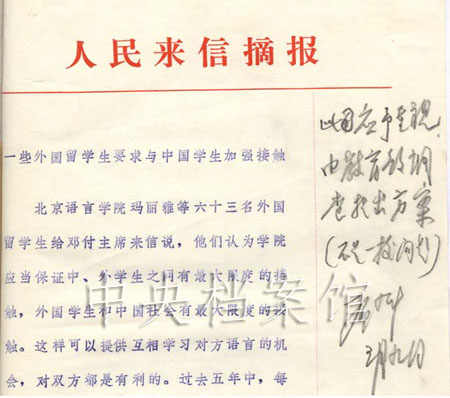 人民来信摘报
一些外国留学生要求与中国学生加强接触
北京语言学院玛丽雅等六十三名外国
留学生给邓付主席来信说，他们认为学院
应当保证中、外学生之间有最大限度的接
触，外国学生和中国社会有最大限度的接
触。这样可以提供互相学习对方语言的机
会，对双方都是有利的。过去五年中，每
应予重视，
由教育部调
查提出方案
中央档案馆